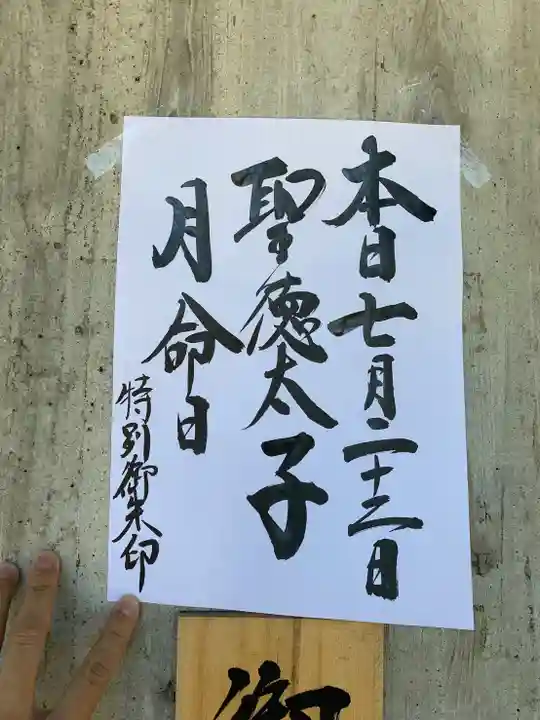 本日七月二十二日
聖徳太子
月命日
特別御朱印
御